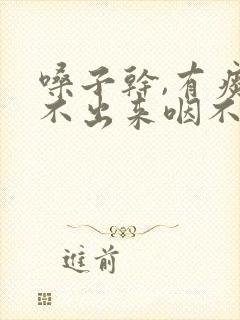 嗓子干,有痰
不出来咽不
进前